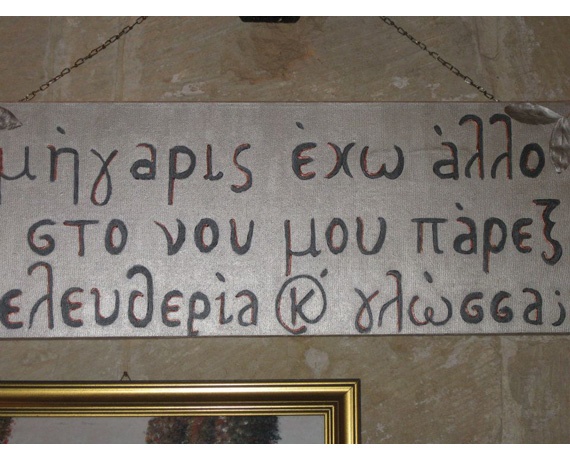 μὴγαρις ἐχω ἀλλο
στο νου μου πὰρεξ
ελευθερὶα κ' γλὼσσα;